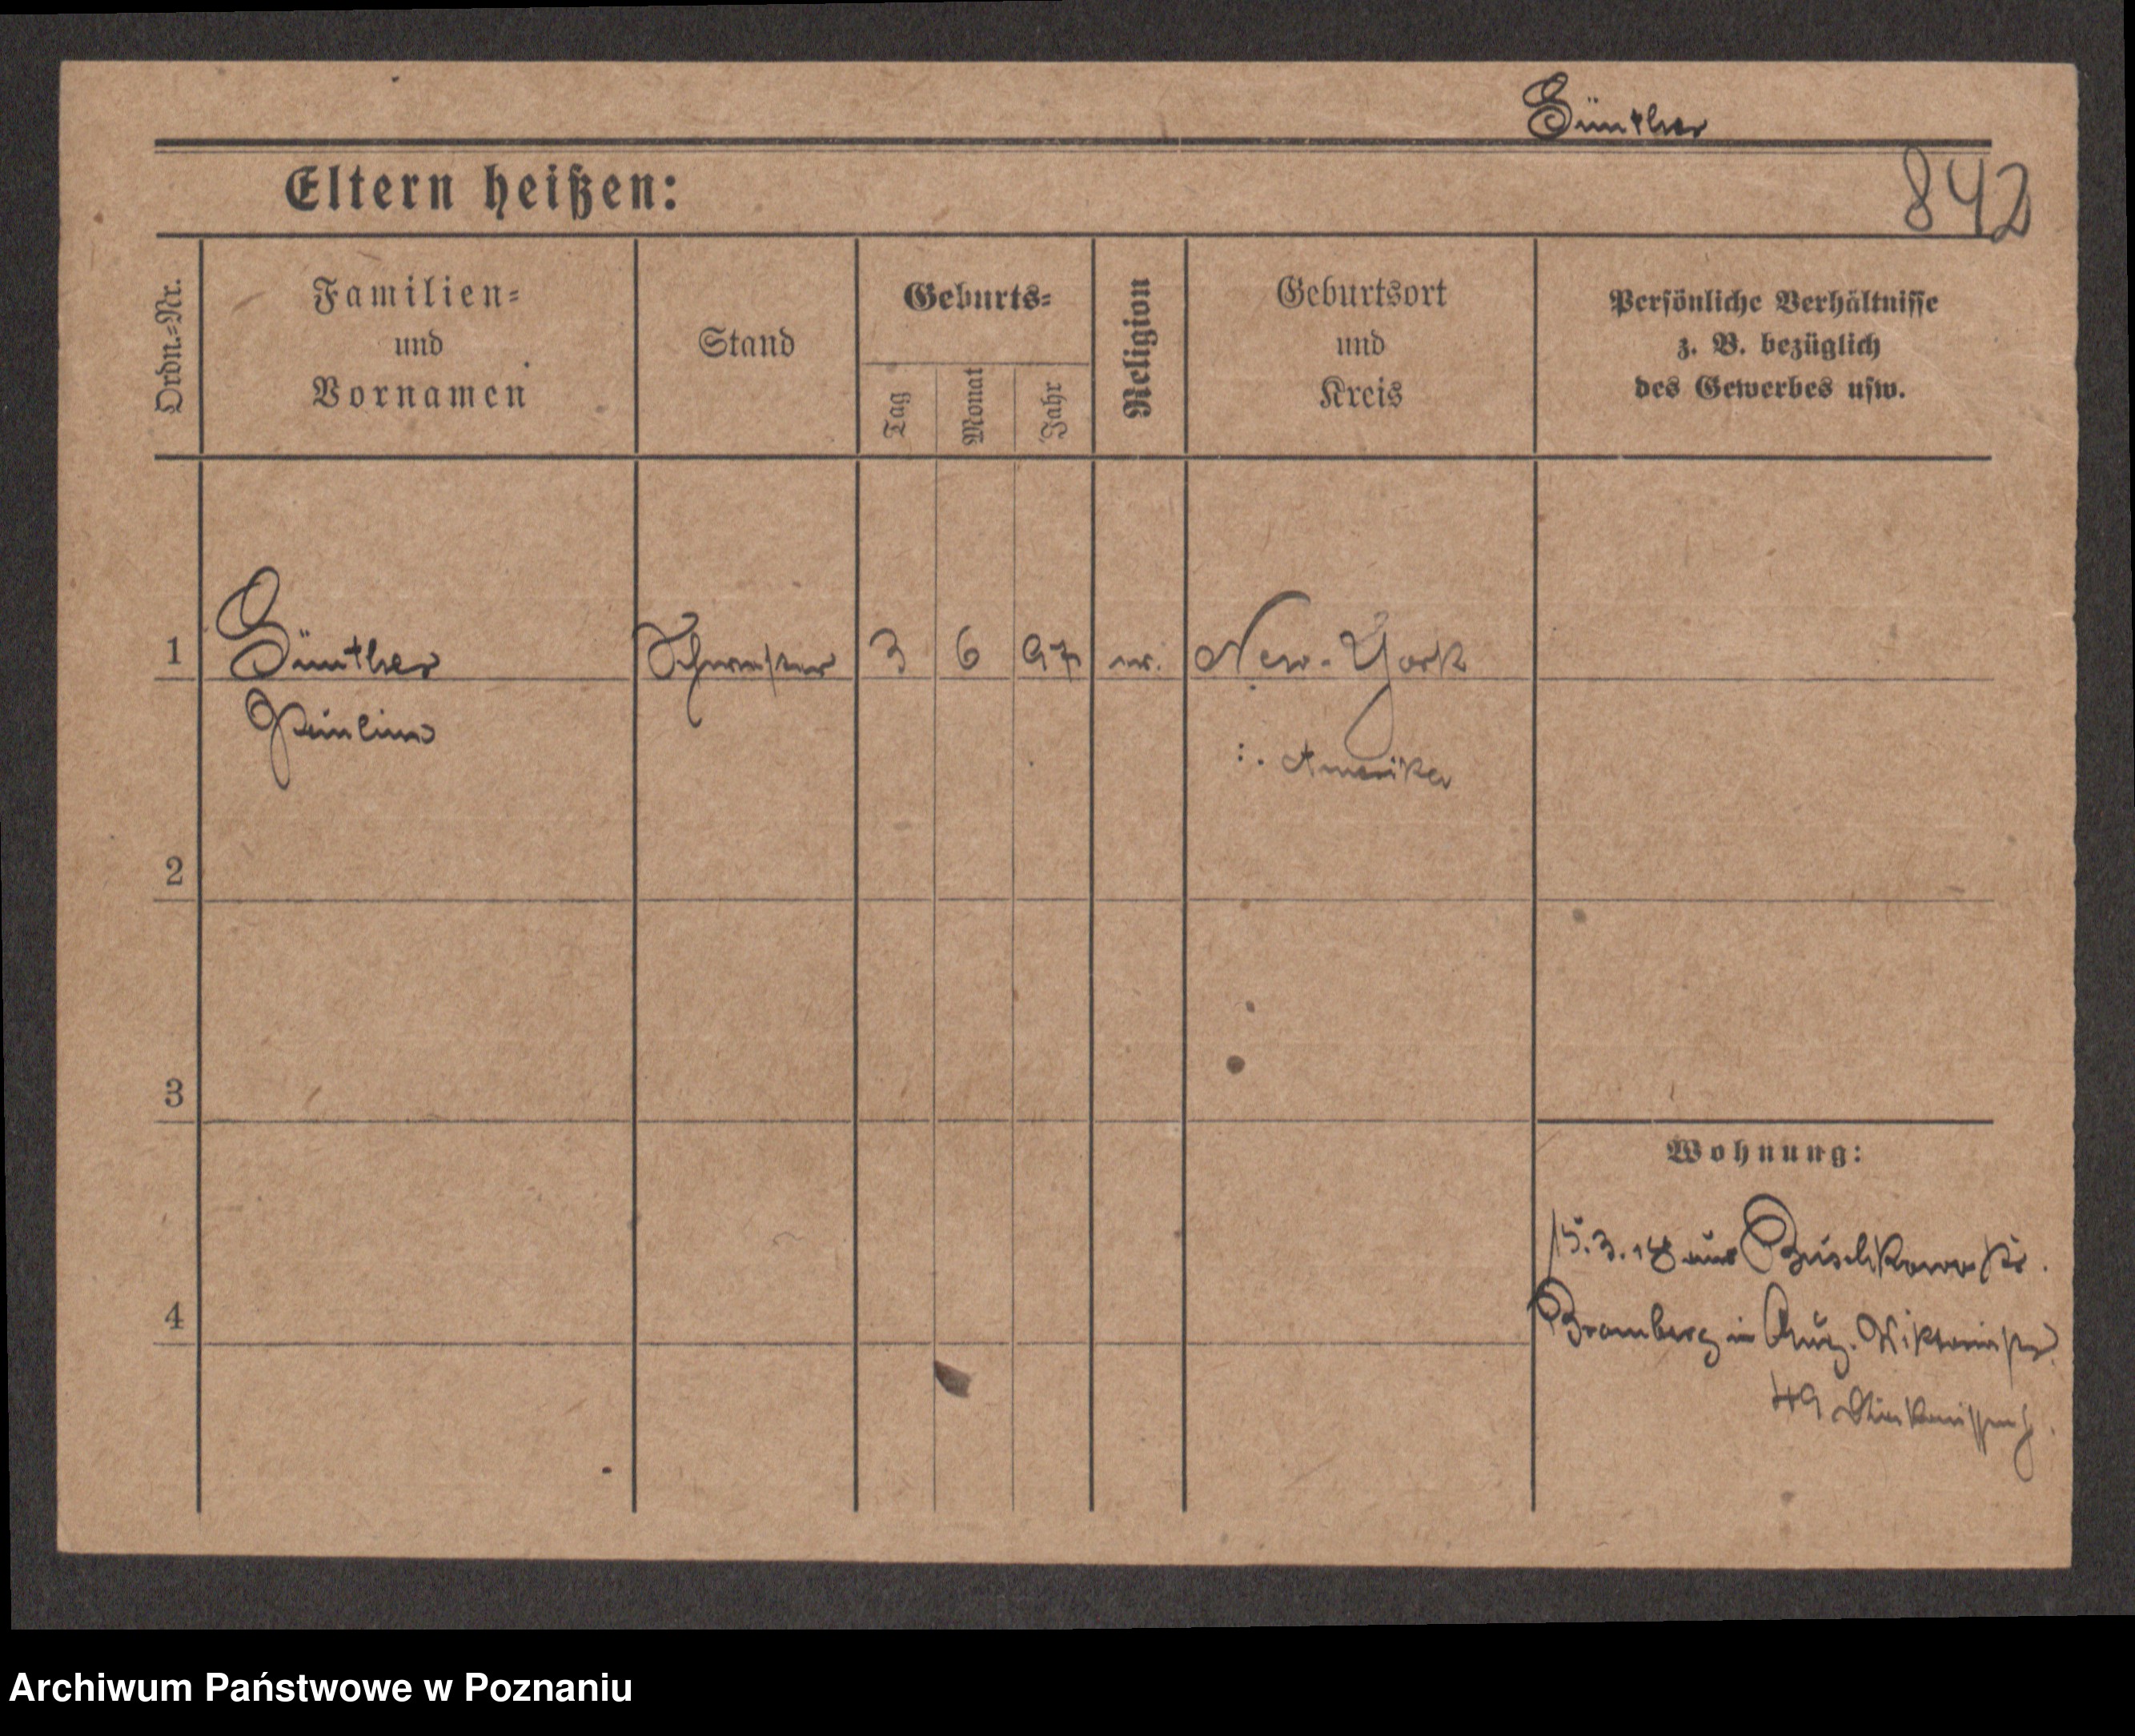 Günther
Eltern heißen:
842
Ordn.=Nr.
Familien=
und
Vornamen
Stand
Geburts=
Tag
Monat
Jahr
Religion
Geburtsort
und
Kreis
Persönliche Verhältnisse
z. B. bezüglich
des Gewerbes usw.
1 Günther Schwester 3 6 97 New-York
Paulina
Amerika
2
3
Wohnung:
15.3.18 aus Buschkowo Kr.
4
Bromberg in Aug. Viktoriastr.
49
Archiwum Państwowe w Poznaniu